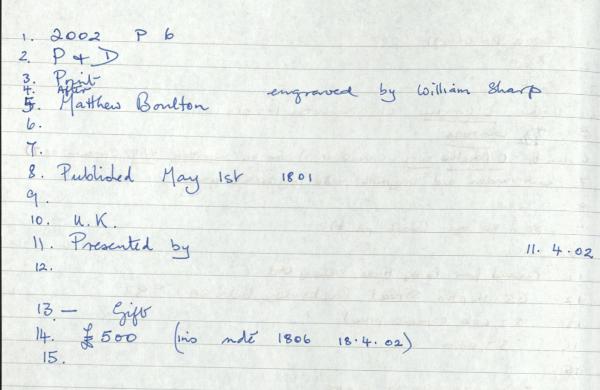 1. 2002 P 6
2. P & D
3. Print
4. After
5. Matthew Boulton engraved by William Sharp
6.
7.
8. Published May 1st 1801
9.
10. U.K.
11. Presented by 11.4.02
12.
13. — Gift
14. £500 (ins note 1806 18.4.02)
15.